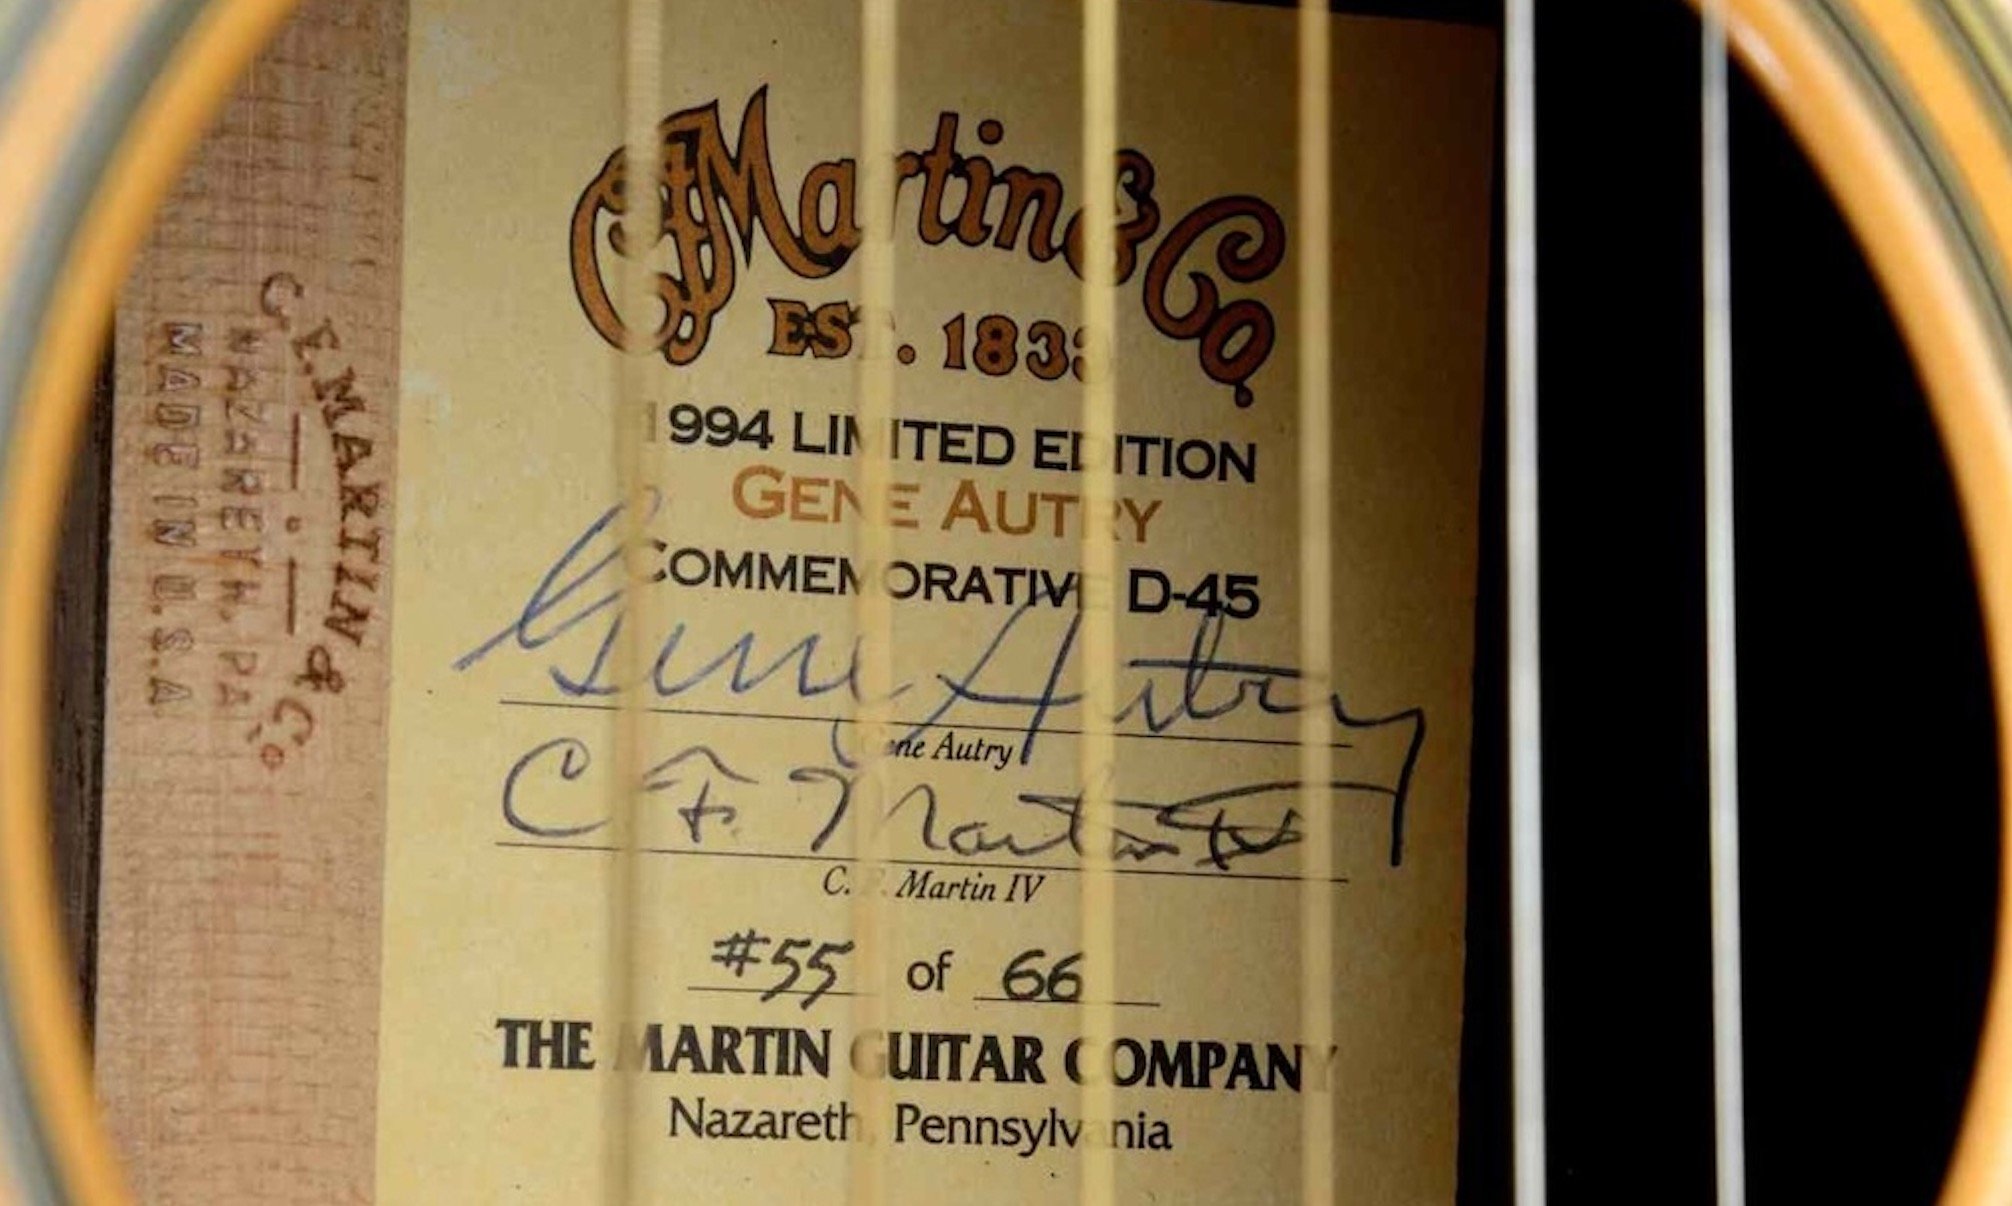 C. F. MARTIN & Co.
NAZARETH, PA.
MADE IN U.S.A
CF Martin & Co.
EST. 1833
1994 LIMITED EDITION
GENE AUTRY
COMMEMORATIVE D-45
Gene Autry
Gene Autry
C F Martin IV
C. F. Martin IV
#55 of 66
THE MARTIN GUITAR COMPANY
Nazareth, Pennsylvania